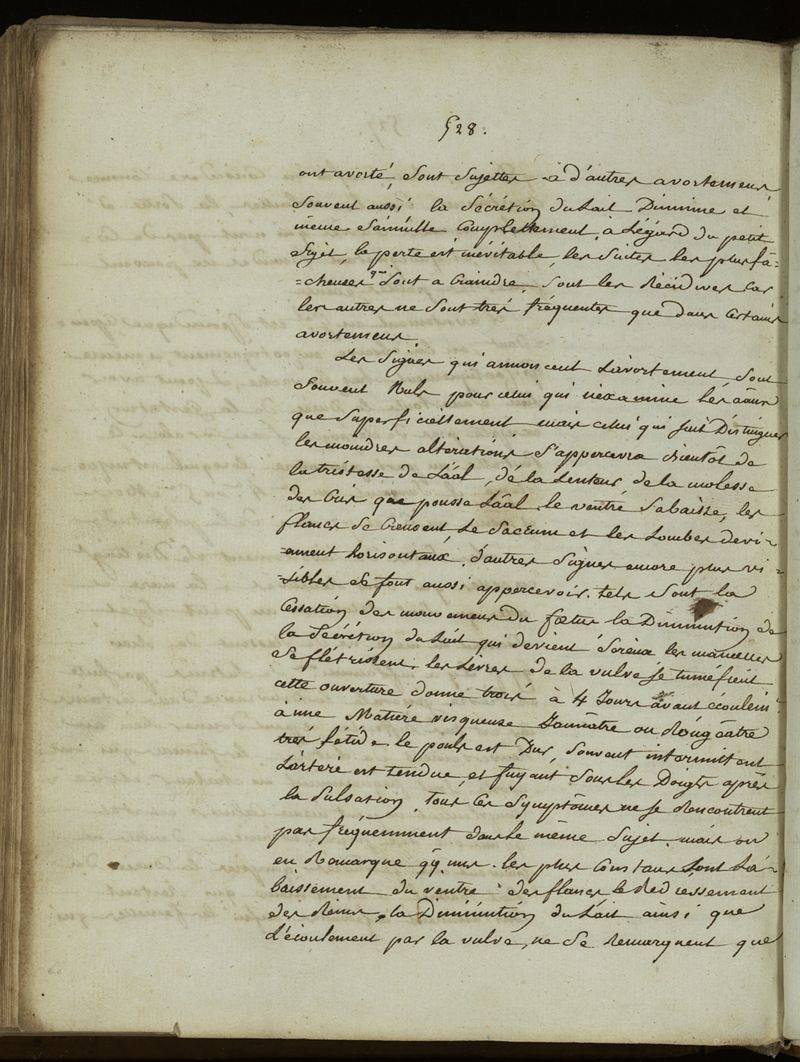 528.
ont avorté, sont sujettes à d'autres avortemens
souvent aussi la sécrétion du lait diminue et
même s'annulle complettement, à l'égard du petit
sujet, la perte est inévitable, les suites les plus fâ-
=cheuses qui sont a craindre, sont les récidives car
les autres ne sont très fréquentes que dans certains
avortemens.
Les signes qui annoncent l'avortement sont
souvent nuls pour celui qui n'éxamine les
que superficiellement mais celui qui sait distinguer
les moindres altérations s'appercevra bientôt de
la tristesse de l'äal, de la lenteur, de la molesse
des cris que pousse l'äal. le ventre s'abaisse, les
flancs se creusent, le sacrum et les lombes devi-
=ennent horisontaux, d'autres signes encore plus vi-
=sibles se font aussi appercevoir. tels sont la
cessation des mouvemens du fœtus la diminution de
la sécrétion du lait qui devient séreux, les mamelles
se flétrissent, les lèvres de la vulve se tuméfient
cette ouverture donne trois à 4 jours avant écoulem.
à une matière visqueuse jaunâtre ou rougeâtre
très fétide. le pouls est dur, souvent intermittent
l'artère est tendue, et fuyant sous les doigts après
la pulsation, tous ces symptômes ne se rencontrent
pas fréquemment dans le même sujet. mais on
en remarque qq. uns. les plus constans sont l'a-
baissement du ventre, des flancs le redressement
des reins, la diminution du lait ainsi que
l'écoulement par la vulve, ne se remarquent que